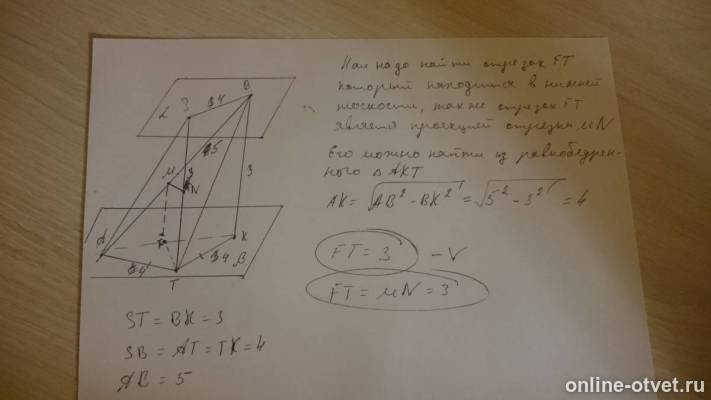 Нам надо найти отрезок FT
который находится в нижней
плоскости, так же отрезок FT
является проекцией отрезка MN
Его можно найти из равнобедрен-
ного △ AKT
AK = √AB² - BK² = √5² - 3² = 4
FT = 3 - V
FT = MN = 3
ST = BK = 3
SB = AT = TK = 4
AB = 5
L
S
4
B
5
M
N
3
3
A
F
K
4
4
β
T
online-otvet.ru